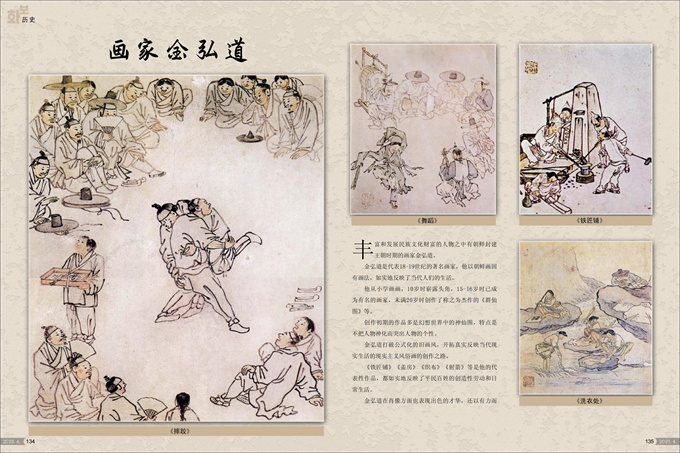 화보
历史
画家金弘道
《摔跤》
《舞蹈》
《铁匠铺》
丰富和发展民族文化财富的人物之中有朝鲜封建
王朝时期的画家金弘道。
金弘道是代表18-19世纪的著名画家，他以朝鲜画固
有画法，如实地反映了当代人们的生活。
他从小学画画，10岁时崭露头角，15-16岁时已成
为有名的画家，未满20岁时创作了称之为杰作的《群仙
图》等。
创作初期的作品多是幻想世界中的神仙图，特点是
不把人物神化而突出人物的个性。
金弘道打破公式化的旧画风，开拓真实反映当代现
实生活的现实主义风俗画的创作之路。
《铁匠铺》《盖房》《织布》《射箭》等是他的代
表性作品，都如实地反映了平民百姓的创造性劳动和日
常生活。
金弘道在肖像方面也表现出色的才华，还以有力而
《洗衣处》
134
135